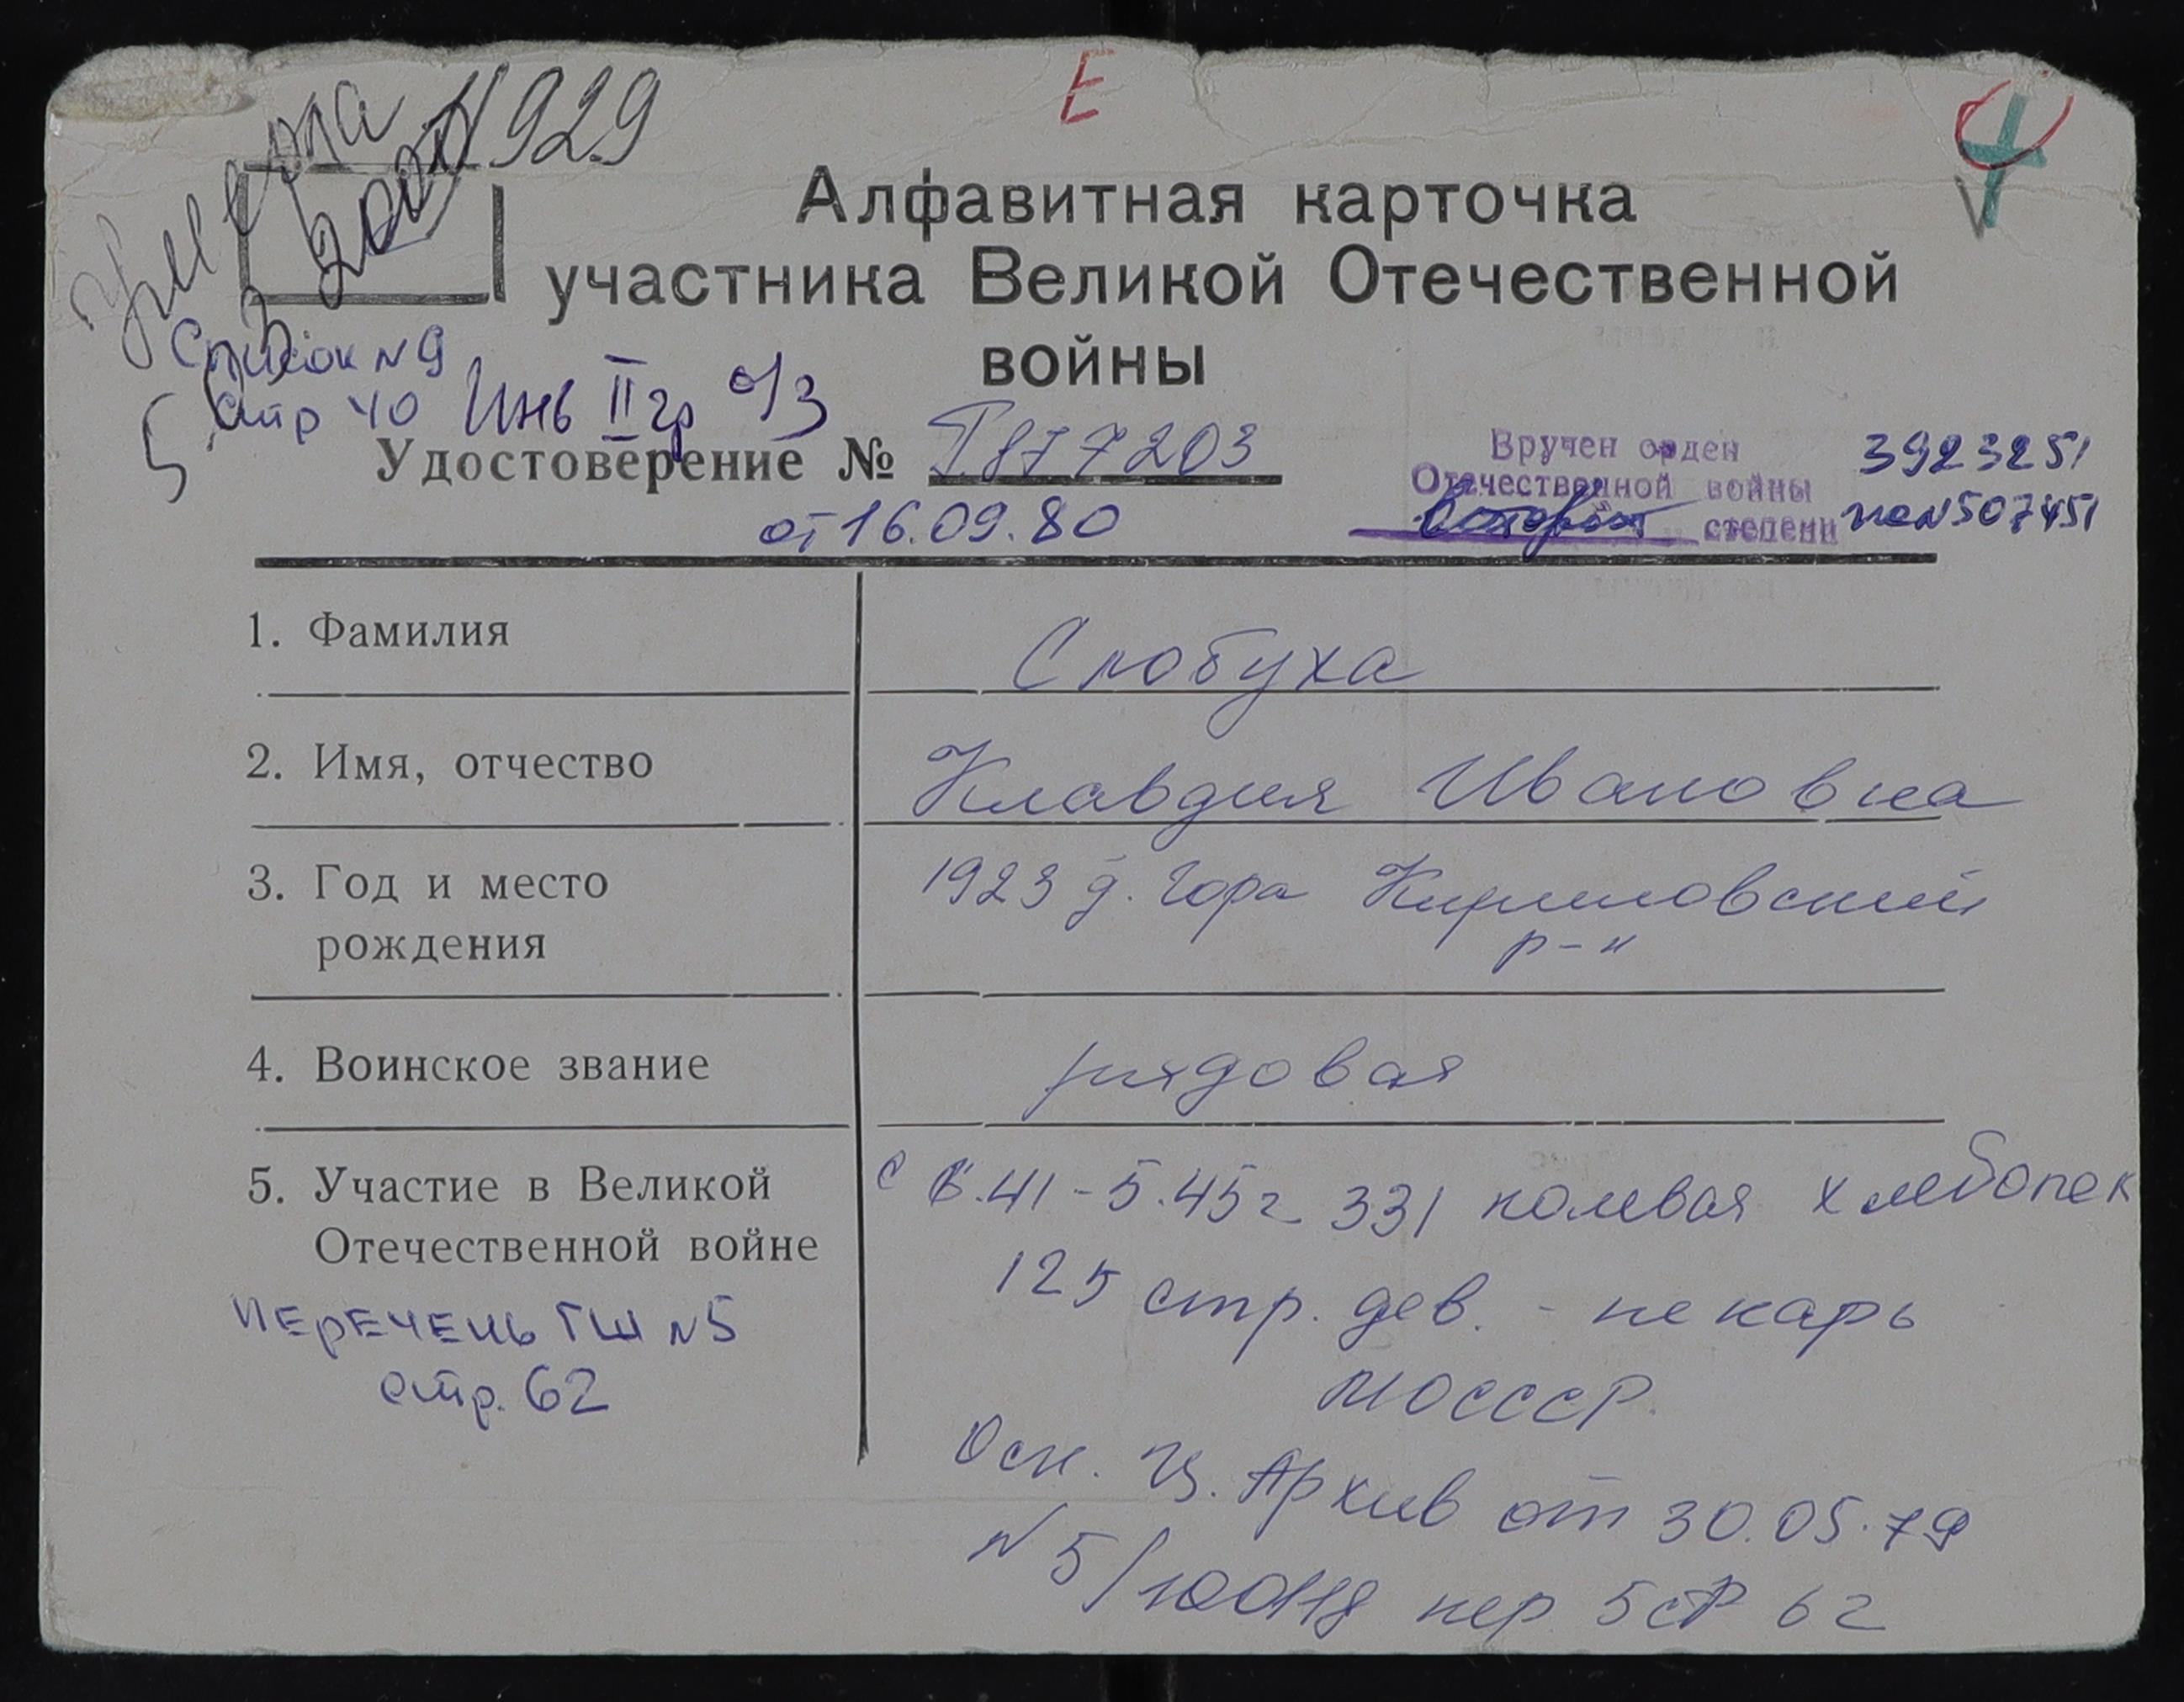 Е
Умерла
2001
929
Алфавитная карточка
участника Великой Отечественной
войны
Список №9
стр 40 Инв II гр о/з
5
Удостоверение № Т 877203
от 16.09.80
Вручен орден 3923251
Отечественной войны
второй степени №507451
1. Фамилия
Слобуха
2. Имя, отчество
Клавдия Ивановна
3. Год и место
рождения
1923 д. Гора Кирилловский
р-н
4. Воинское звание
рядовая
5. Участие в Великой
Отечественной войне
с 6.41-5.45г 331 полевая хлебопек
125 стр. див. - пекарь
МОСССР.
ПЕРЕЧЕНЬ ГШ №5
стр. 62
Осн. Ц. Архив от 30.05.79
№5/100118 пер 5 стр 62